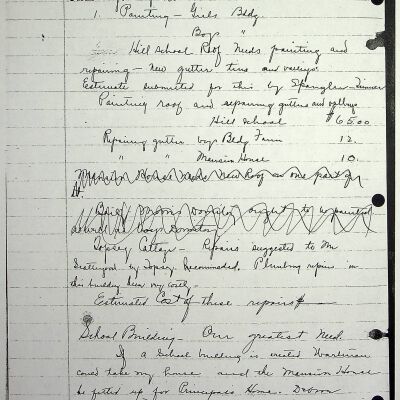 1. Painting - Girls Bldg.
Boys "
Hill School Roof Needs painting and
repairing - new gutter tins and valleys.
Estimate submitted for this by Spangler-Zimmer
Painting roof and repairing gutters and
Hill School $65.00
Repairing gutters boys Bldg Farm 12.
" " Mansion House 10.
new Roof on one part
it.
ought to be painted
Topsey Cottage - Repairs suggested to Mr
by Topsy. Recommended. Plumbing repairs in
this building
Estimated Cost of these repairs $
School Building - Our greatest need.
If a School building is
could take my house and the Mansion House
be fitted up for Principals Home.